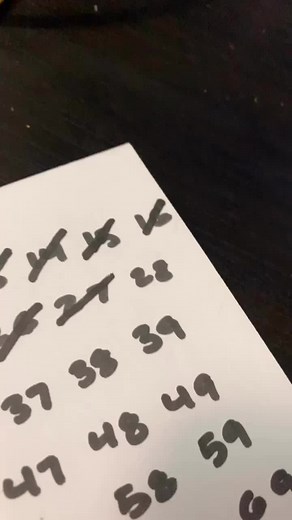 14 15 16
27 28
37 38 39
47 48 49
58 59
69